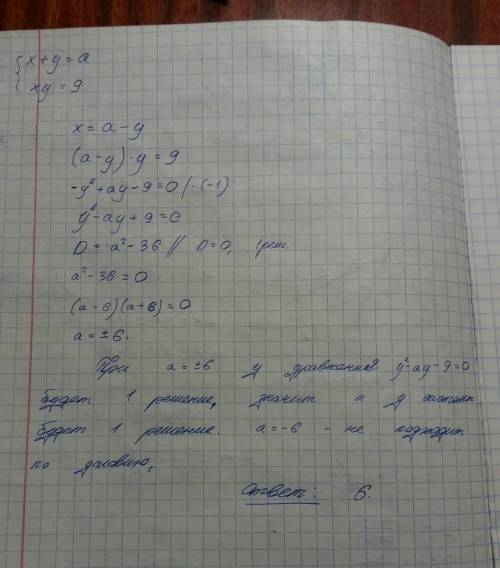 x+y=a
xy=9
x=a-y
(a-y)·y=9
-y²+ay-9=0 |·(-1)
y²-ay+9=0
D=a²-36 // D=0, 1реш.
a²-36=0
(a-6)(a+6)=0
a=±6.
При a=±6 у уравнения y²-ay-9=0
будет 1 решение, значит и у системы
будет 1 решение. a=-6 - не подходит
по условию,
Ответ: 6.